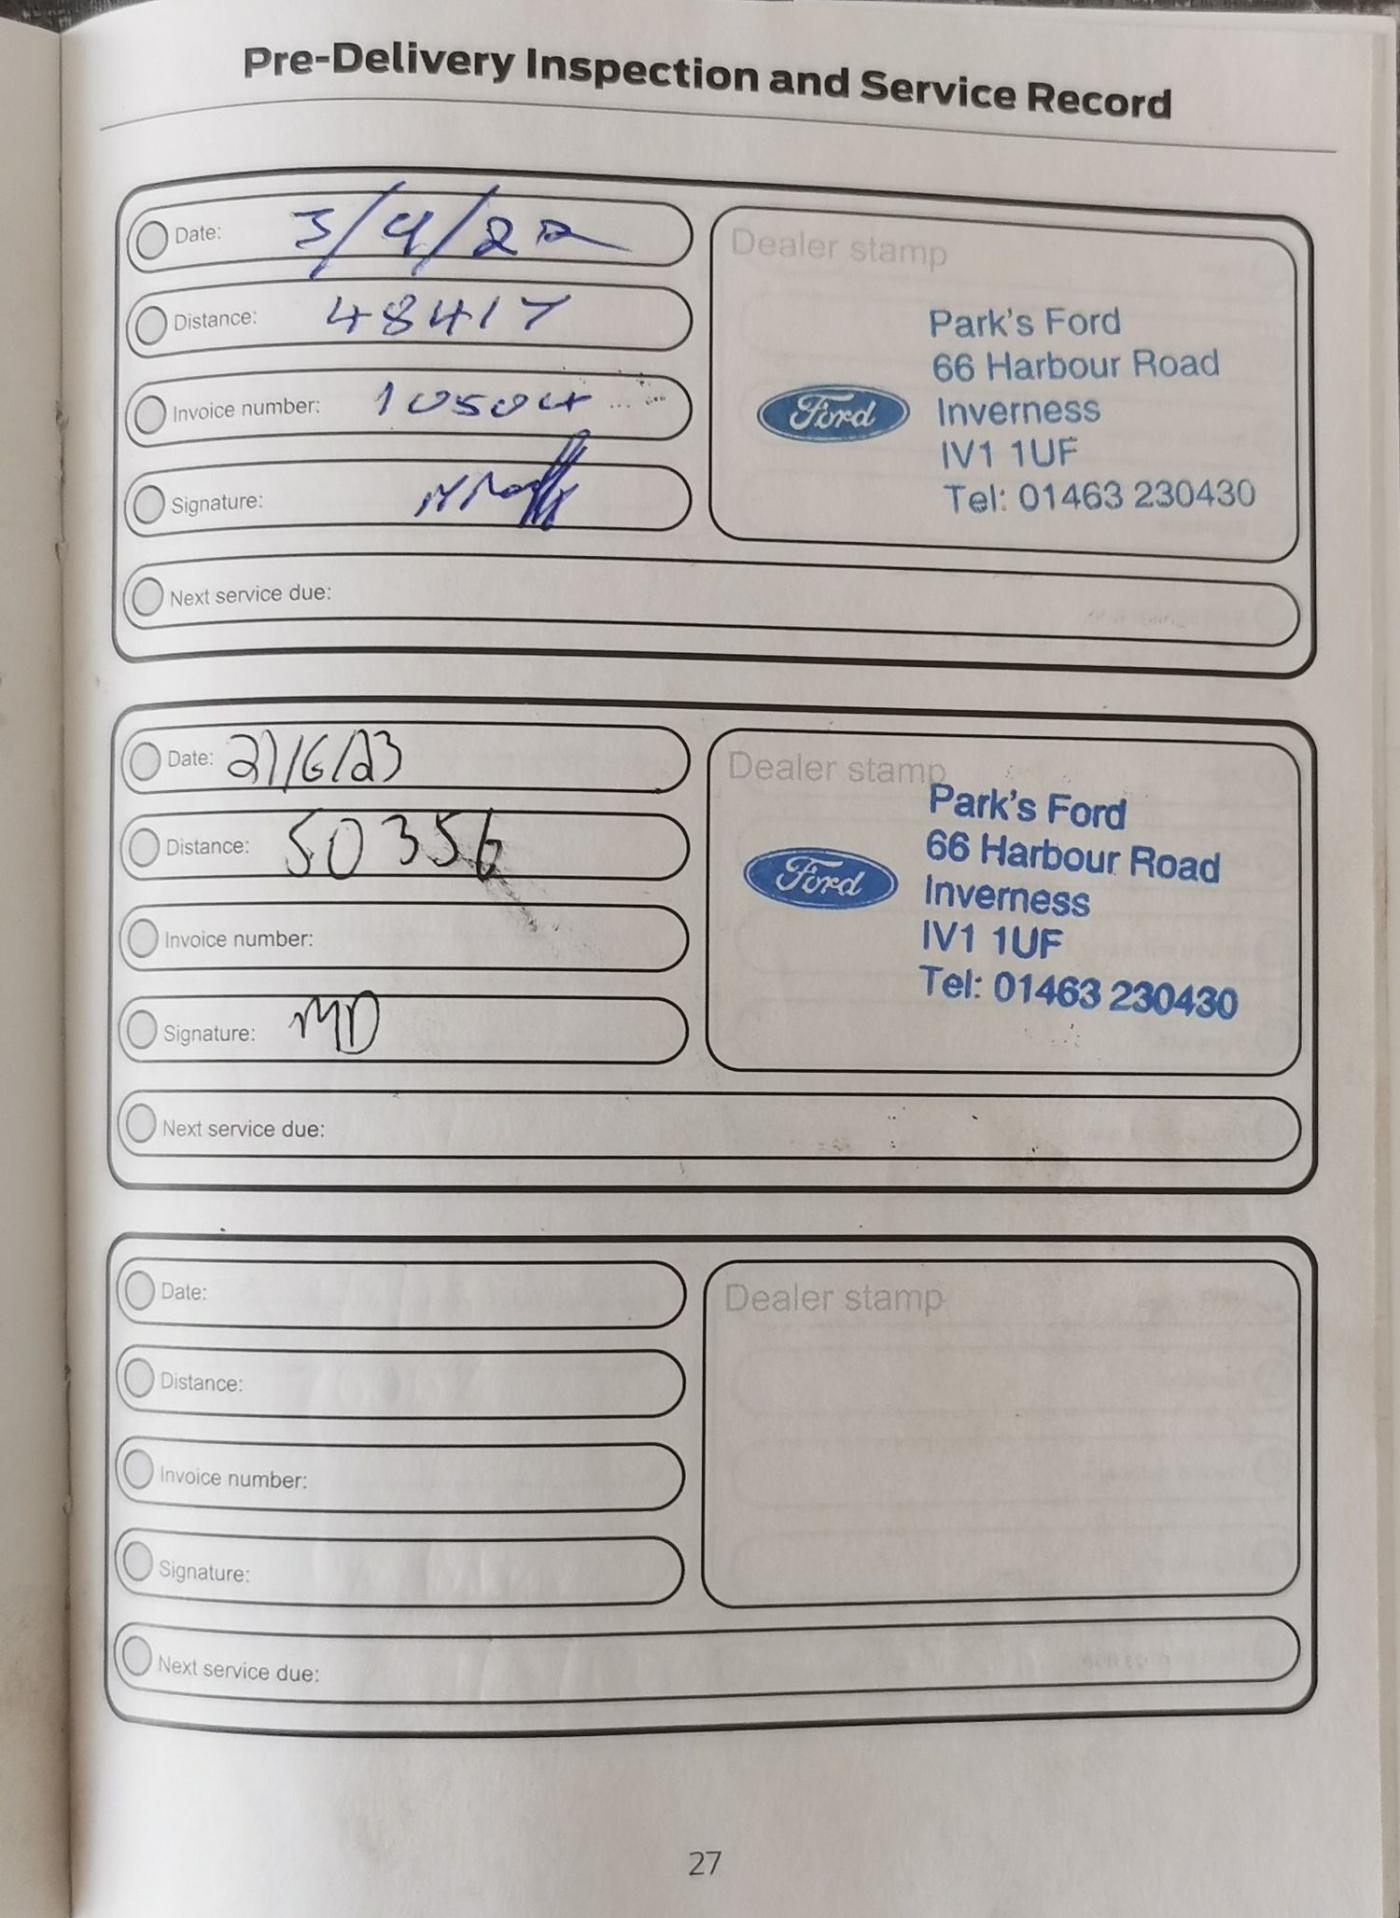 Pre-Delivery Inspection and Service Record
Date: 3/4/22
Distance: 48417
Invoice number: 10504
Signature:
Next service due:
Dealer stamp
Ford
Park's Ford
66 Harbour Road
Inverness
IV1 1UF
Tel: 01463 230430
Date: 21/6/23
Distance: 50356
Invoice number:
Signature: MD
Next service due:
Dealer stamp
Ford
Park's Ford
66 Harbour Road
Inverness
IV1 1UF
Tel: 01463 230430
Date:
Distance:
Invoice number:
Signature:
Next service due:
Dealer stamp
27